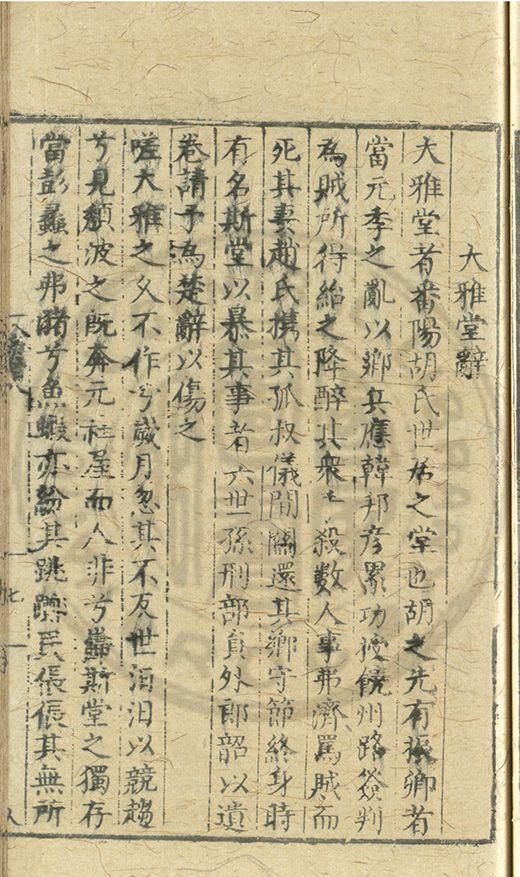 大雅堂辭
大雅堂者番陽胡氏世居之堂也胡之先有振卿者
當元季之亂以鄉兵應韓邦彦累功授饒州路簽判
為賊所得紿之降醉其衆手殺數人事弗濟罵賊而
死其妻趙氏携其孤叔儀間關還其鄉守節終身時
有名斯堂以暴其事者六世孫刑部負外郎韶以遺
卷請予為楚辭以傷之
嗟大雅之久不作兮歲月忽其不反世汨汨以競趨
兮見頽波之既奔元社屋而人非兮巋斯堂之獨存
當彭蠡之弗瀦兮魚蝦亦紛其跳踉民倀倀其無所